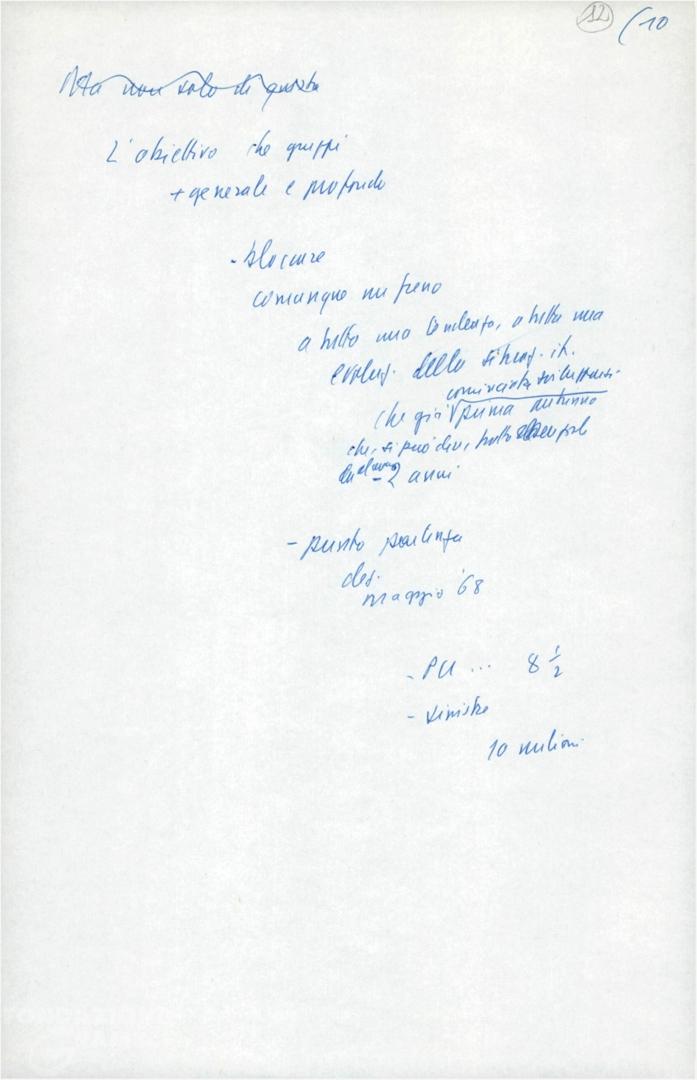 12 (10
Ma non solo di questo
L'obiettivo che gruppi
+ generale e profondo
- bloccare
comunque un freno
a tutta una tendenza, a tutta una
evoluz. della situaz. it.
cominciata svilupparsi
che già prima autunno
che, si può dire, tutto
2 anni
- punto partenza
maggio '68
- PCI ... 8 1/2
- sinistre
10 milioni